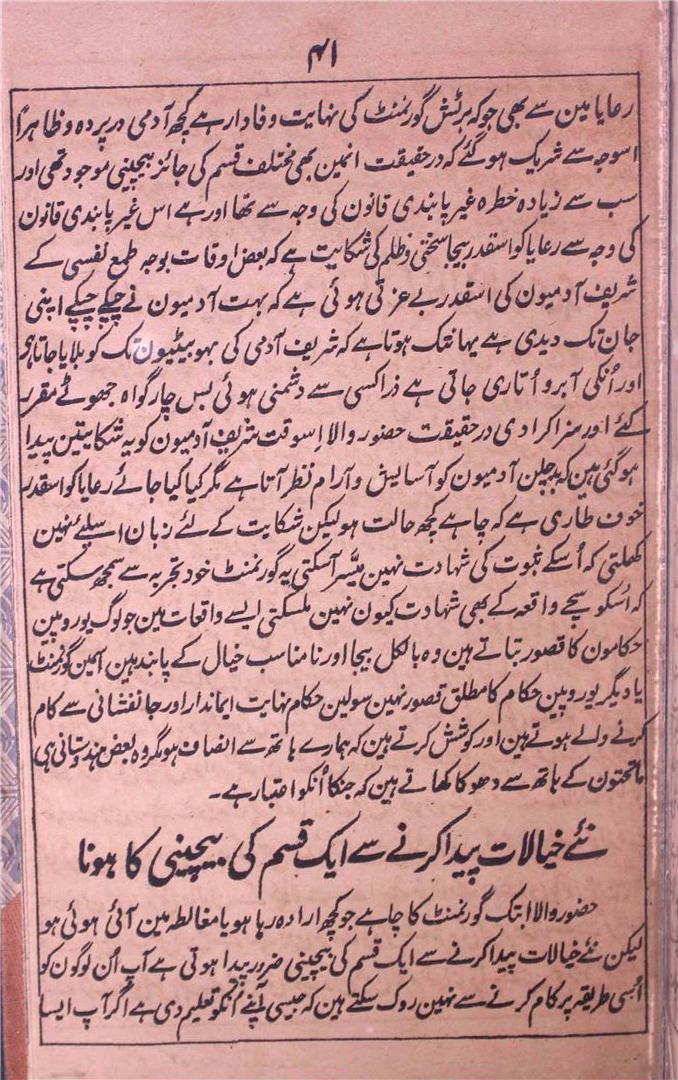 ۴۱
رعایا مین سے بھی جو کہ برٹش گورنمنٹ کی نہایت وفادار ہے کچھ آدمی در پردہ و ظاہراً
اسوجہ سے شریک ہو گئے کہ درحقیقت انمین بھی مختلف قسم کی جائز بیچینی موجود تھی اور
سب سے زیادہ خطرہ غیر پابندی قانون کی وجہ سے تھا اور ہے اس غیر پابندی قانون
کی وجہ سے رعایا کو اسقدر بیجا سختی و ظلم کی شکایت ہے کہ بعض اوقات بوجہ طمع نفسی کے
شریف آدمیون کی اسقدر بے عزتی ہوئی ہے کہ بہت آدمیون نے چپکے چپکے اپنی
جان تک دیدی ہے یہانتک ہوتا ہے کہ شریف آدمی کی بہو بیٹیون تک کو بلایا جاتا ہی
اور اُنکی آبرو اُتاری جاتی ہے ذرا کسی سے دشمنی ہوئی بس چار گواہ جھوٹے مقرر
کئے اور سزا کرا دی درحقیقت حضور والا اِسوقت شریف آدمیون کو یہ شکایتین پیدا
ہو گئی ہین کہ بدچلن آدمیون کو آسایش و آرام نظر آتا ہے مگر کیا کیا جائے رعایا کو اسقدر
خوف طاری ہے کہ چاہے کچھ حالت ہو لیکن شکایت کے لئے زبان اسلیئے نہین
کھلتی کہ اُسکے ثبوت کی شہادت نہین میسّر آسکتی یہ گورنمنٹ خود تجربہ سے سمجھ سکتی ہے
کہ اُسکو سچے واقعہ کے بھی شہادت کیون نہین ملسکتی ایسے واقعات مین جو لوگ یوروپین
حکامون کا قصور بتاتے ہین وہ بالکل بیجا اور نا مناسب خیال کے پابند ہین اسمین گورنمنٹ
یا دیگر یوروپین حکام کا مطلق قصور نہین سولین حکام نہایت ایماندار اور جانفشانی سے کام
کرنے والے ہوتے ہین اور کوشش کرتے ہین کہ ہمارے ہاتھ سے انصاف ہو مگر وہ بعض ہندوستانی ہی
ماتحتون کے ہاتھ سے دھوکا کھاتے ہین کہ جنکا اُنکو اعتبار ہے۔
نئے خیالات پیدا کرنے سے ایک قسم کی بیچینی کا ہونا
حضور والا ابتک گورنمنٹ کا چاہے جو کچھ ارادہ رہا ہو یا مغالطہ مین آئی ہوئی ہو
لیکن نئے خیالات پیدا کرنے سے ایک قسم کی بیچینی ضرور پیدا ہوتی ہے آپ اُن لوگون کو
اُسی طریقہ پر کام کرنے سے نہین روک سکتے ہین کہ جیسی آپنے اُنکو تعلیم دی ہے اگر آپ ایسا